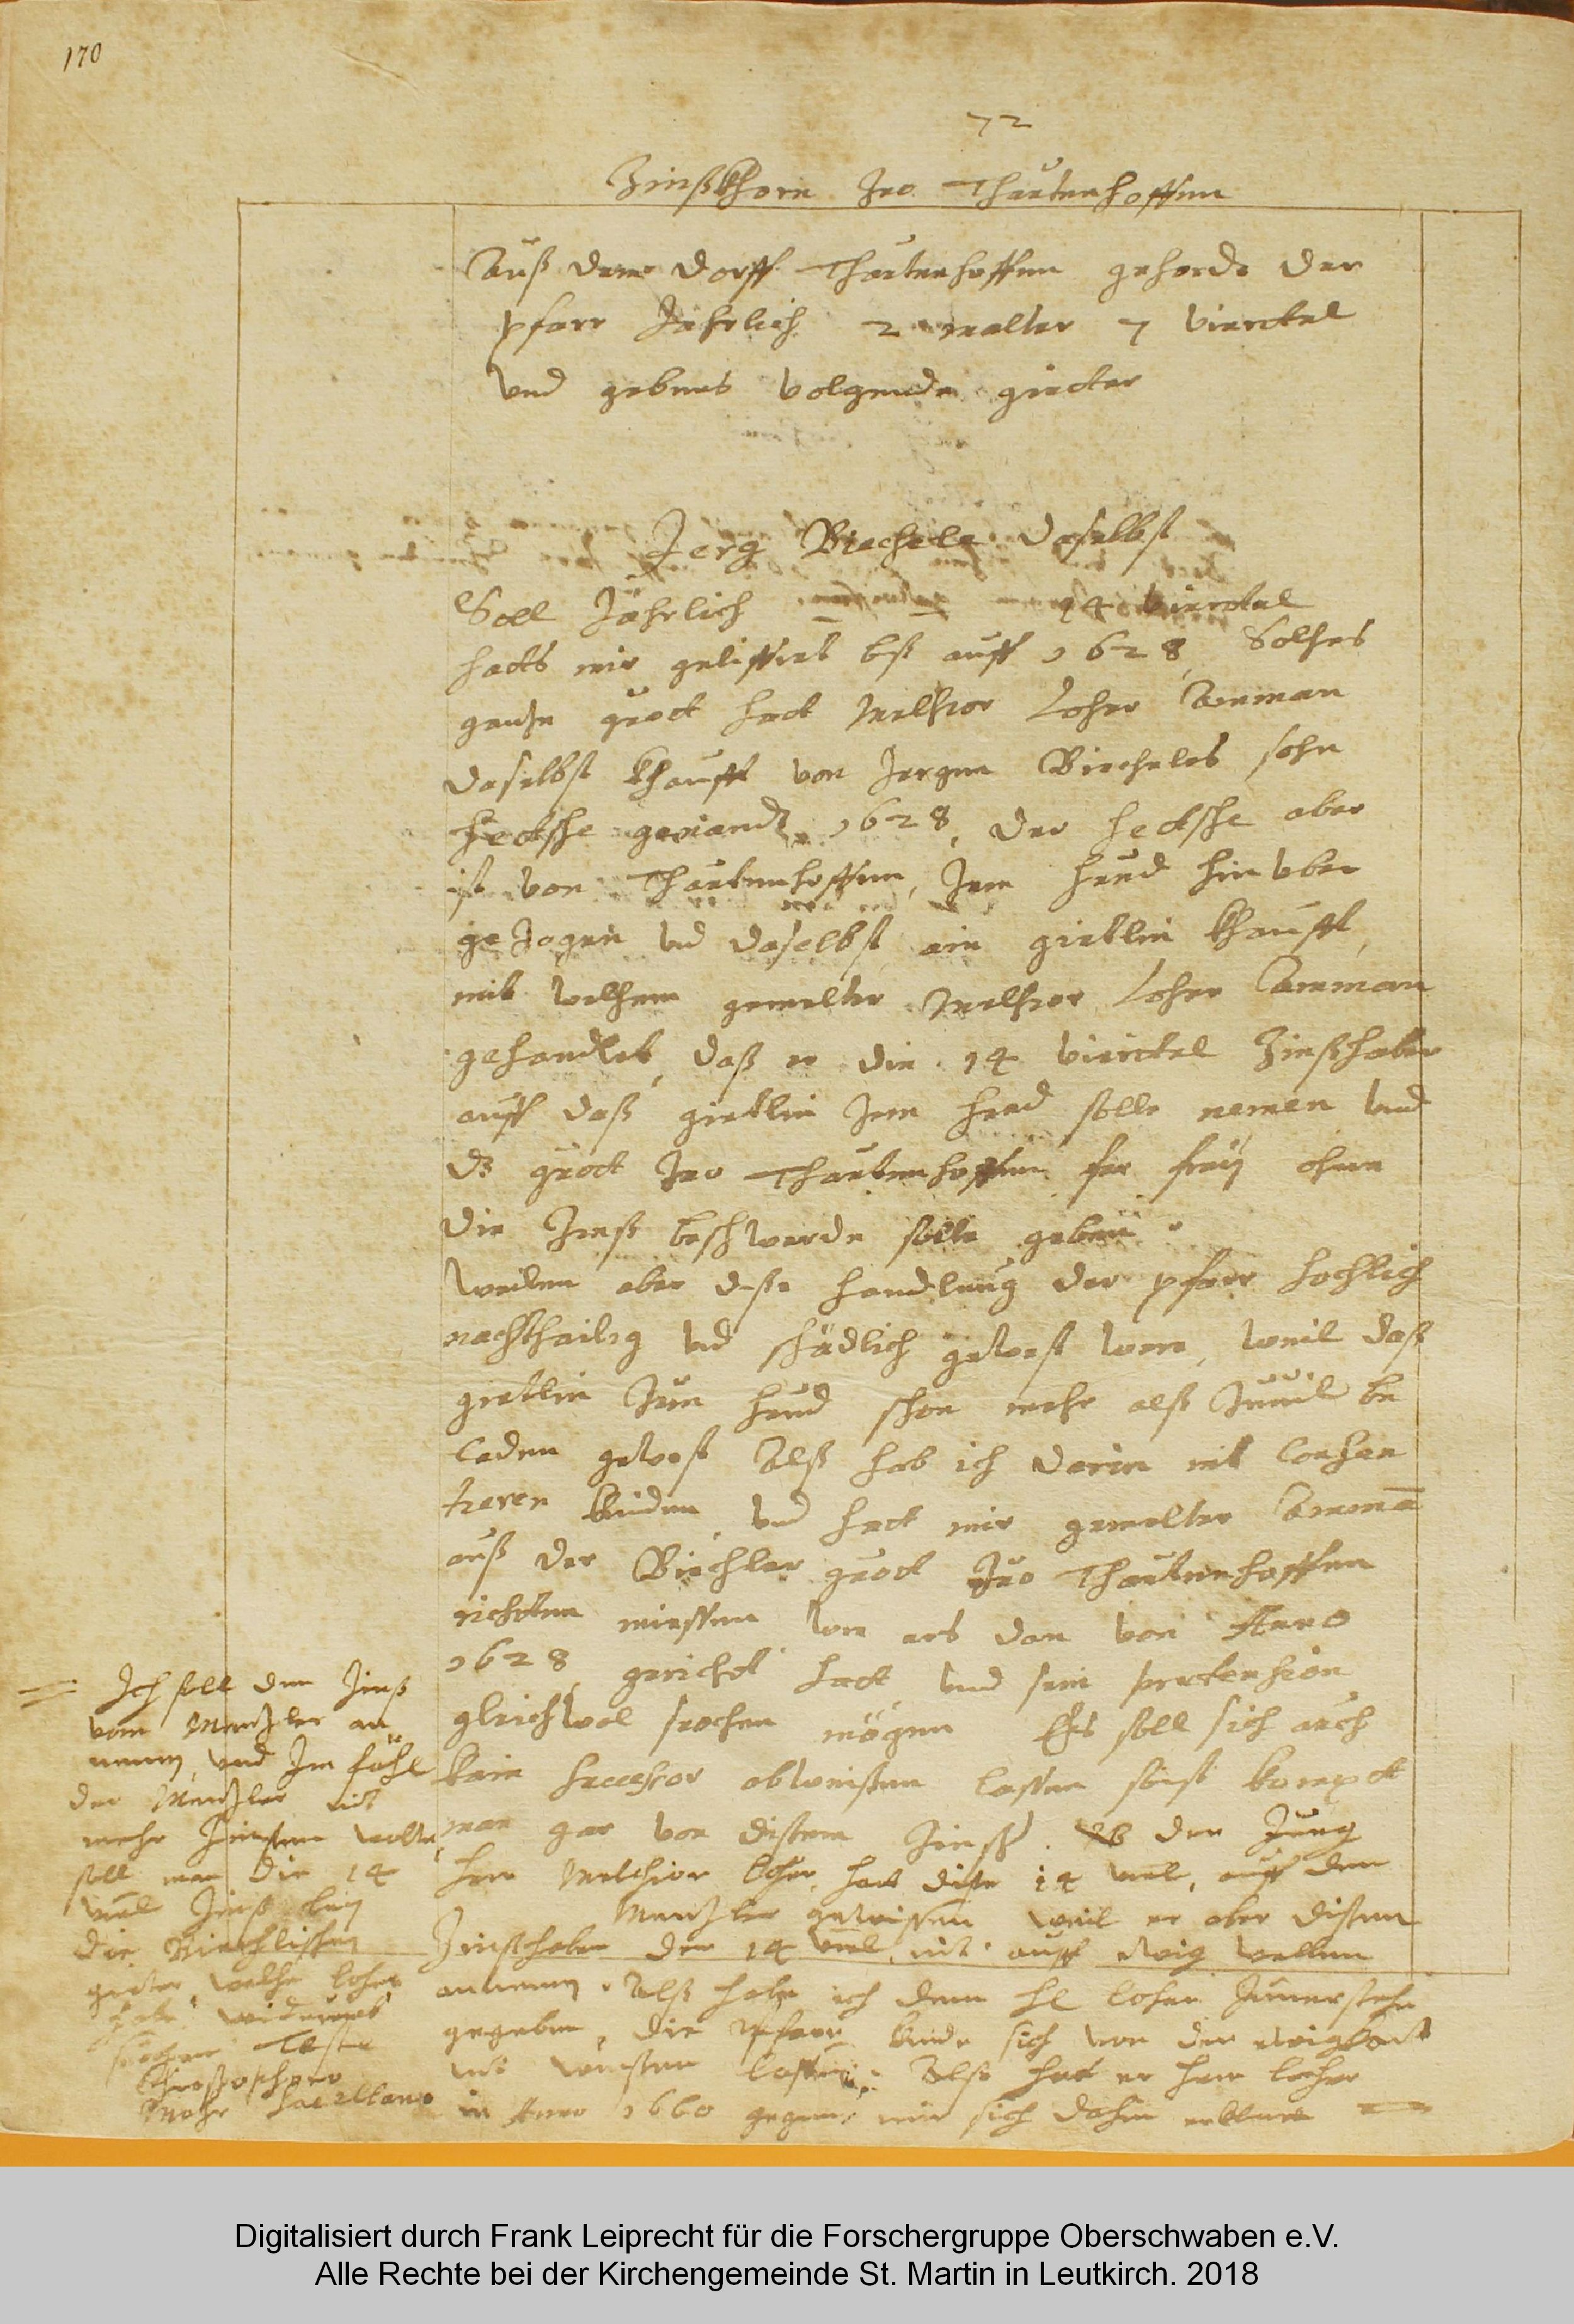 170
72
Zinßkhorn Zuo Thautenhoffen
Auß dem dorff Thautenhoffen gehördt der
pfarr Jahrlich 2 malter 7 vierttel
vnd gebens volgende gietter
Jerg Biechele daselbst
Soll Jährlich 14 vierttel
hatts mir geliffret biß auff 1628, Solches
gantze guott hatt Melchior Locher Amman
daselbst khaufft von Jergen Biecheles sohn
Hecksche genandt 1628, der Hecksche aber
ist von Thautenhoffen, Zum Hund hinvber
gezogen vnd daselbst ein gietlin khaufft,
mit welchem gemelter Melchior Locher Amman
gehandlet, daß er die 14 vierttel Zinßhaber
auff daß gietlin Zum Hund solle nemen vnd
dz guott Zuo Thautenhoffen fir frey ohne
die Zinß beschwerde solle geben.
weilen aber dise handlung der pfarr hochlich
nachthailig vnd schädlich gewest wer, weil daß
gietlin Zum Hund schon mehr alß Zuuil be
laden gewest Alß hab ich darin nit consen
tieren kinden, vnd hatt mir gemelter Ammā
auß der Biechler guott Zuo Thautenhoffen
richten miessen wie ers dan von Anno
1628 gericht hatt vnd sein prætension
gleichwol suochen mögen Es soll sich auch
kein successor abweisen lassen sonst kompt
man gar von disem Zinß. der Jung
Herr Melchior locher, hat dise 14 viel, auff den
Mentzler gewissen weil er aber disen
Zinßhaber der 14 viel nit auff ewig wellen
annemen. Alß habe ich dem Hl locher Zuuerstehn
gegeben, die Pfarr kinde sich von der ewigkait
nit weisen lassen: Alß hat er herr locher
in Anno 1660 gegen mir sich dahin erklert =
= Ich soll den Zinß
vom Mentzler an
nemen, vnd Im fahl
der Mentzler nit
mehr Zinsen wolte,
soll man die 14
viel Zinß bey
die Biechlischen
gieter, welche locher
habe widerumb
suochen Teste
Christophoro
Mohr Sacellano
Digitalisiert durch Frank Leiprecht für die Forschergruppe Oberschwaben e.V.
Alle Rechte bei der Kirchengemeinde St. Martin in Leutkirch. 2018